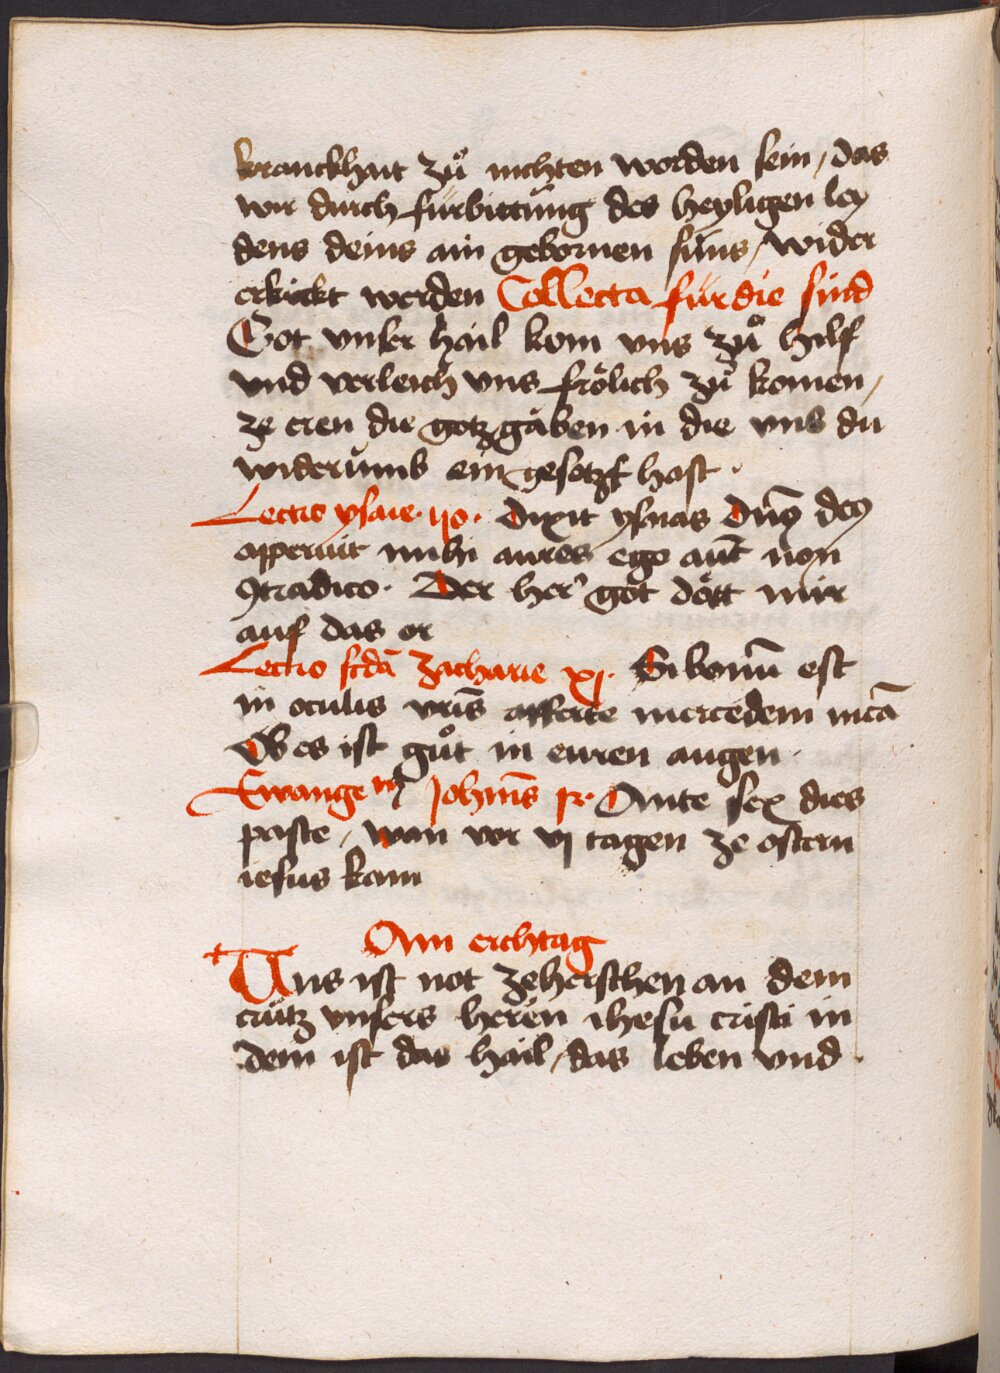 kranckhait zuͦ nichten worden sein / das
wir durch fürbittung des heyligen ley
dens deins ain gebornen suns / wider
erkickt werden Collecta für die sind
Got vnser hail kom vns zuͦ hilf
vnd verleich vns frölich zuͦ komen /
ze eren die gotz gäben in die vns du
widerumb ein gesetzt hast .
Lectio ysaie · 50 · Dixit ysaias Dn̄s deꝰ
apperuit michi aures ego aut̄ non
ꝯtradico · Der her got dött mir
auf das or
Lectio scd̄a zacharie xj · Si bonū est
in oculis vr̄is afferte mercedem meā
Ob es ist guͦt in ewren augen ·
Ewangeᵐ Joh̄nis 12 · Ante sex dies
pasce / wan vor vj tagen ze ostern
iesus kam
Am erchtag
Uns ist not zeherschen an dem
crütz vnsers heren ihesu cristi in
dem ist das hail / das leben vnd .